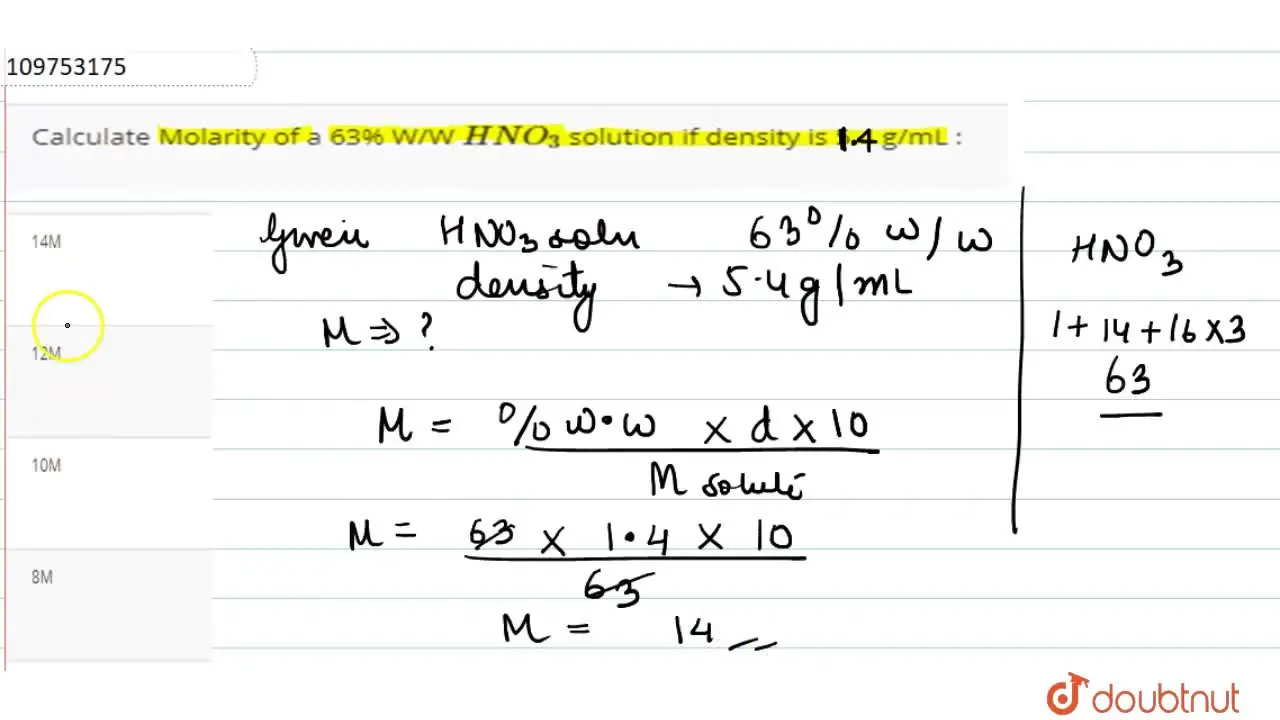 109753175
Calculate Molarity of a 63% W/W HNO₃ solution if density is 1.4 g/mL :
14M
12M
10M
8M
Given HNO₃ solu 63% w/w
density → 5.4g/mL
M ⇒ ?
M = % w.w × d × 10
M solute
M = 63 × 1.4 × 10
63
M = 14
HNO₃
1 + 14 + 16 × 3
63
doubtnut